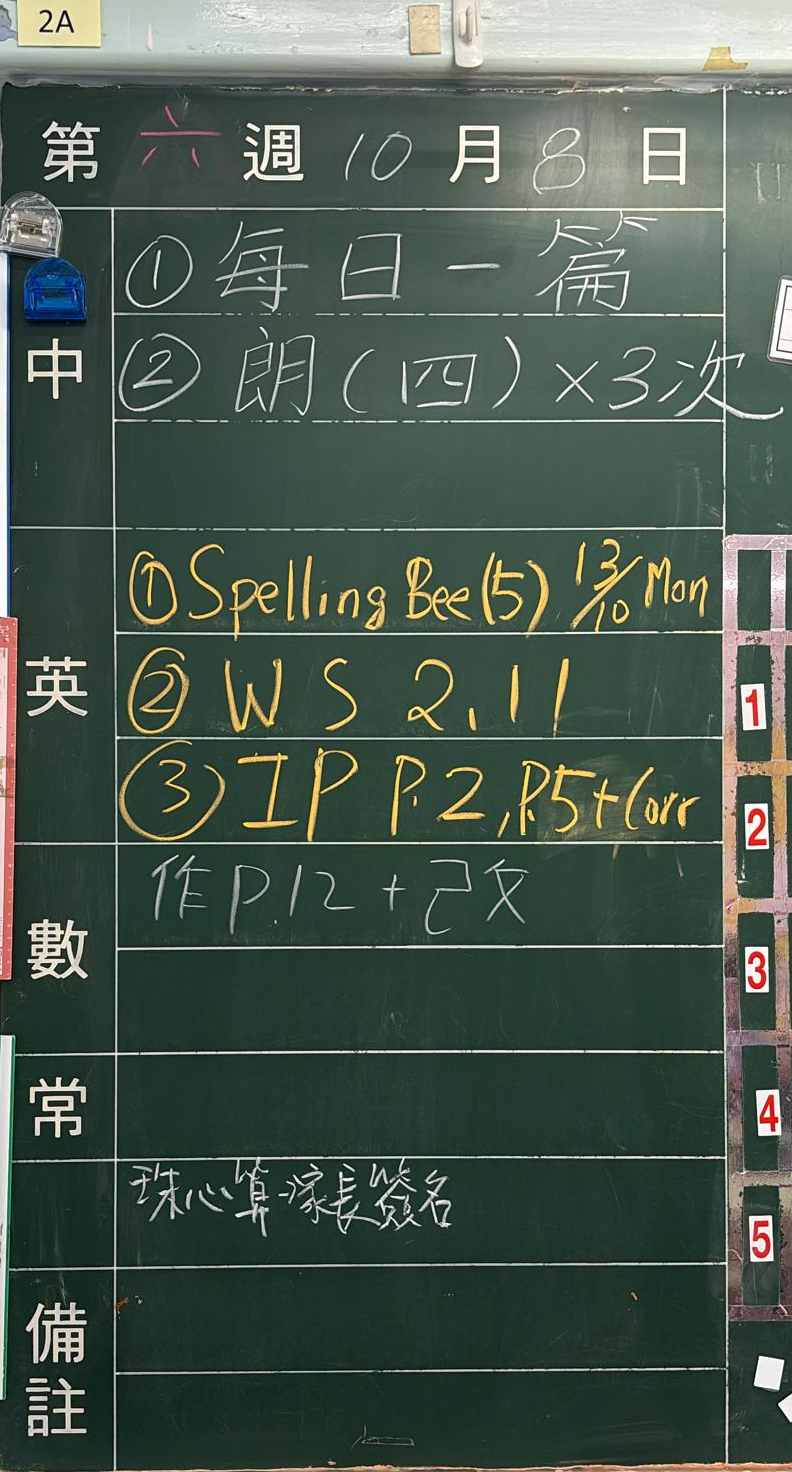 2A
第六週10月8日
中
①每日一篇
②朗(四)×3次
英
①Spelling Bee(5) 13/10 Mon
②WS 2.11
③IP P.2,P.5+Corr
數
作P.12+改
常
珠心算-家長簽名
備註
1
2
3
4
5